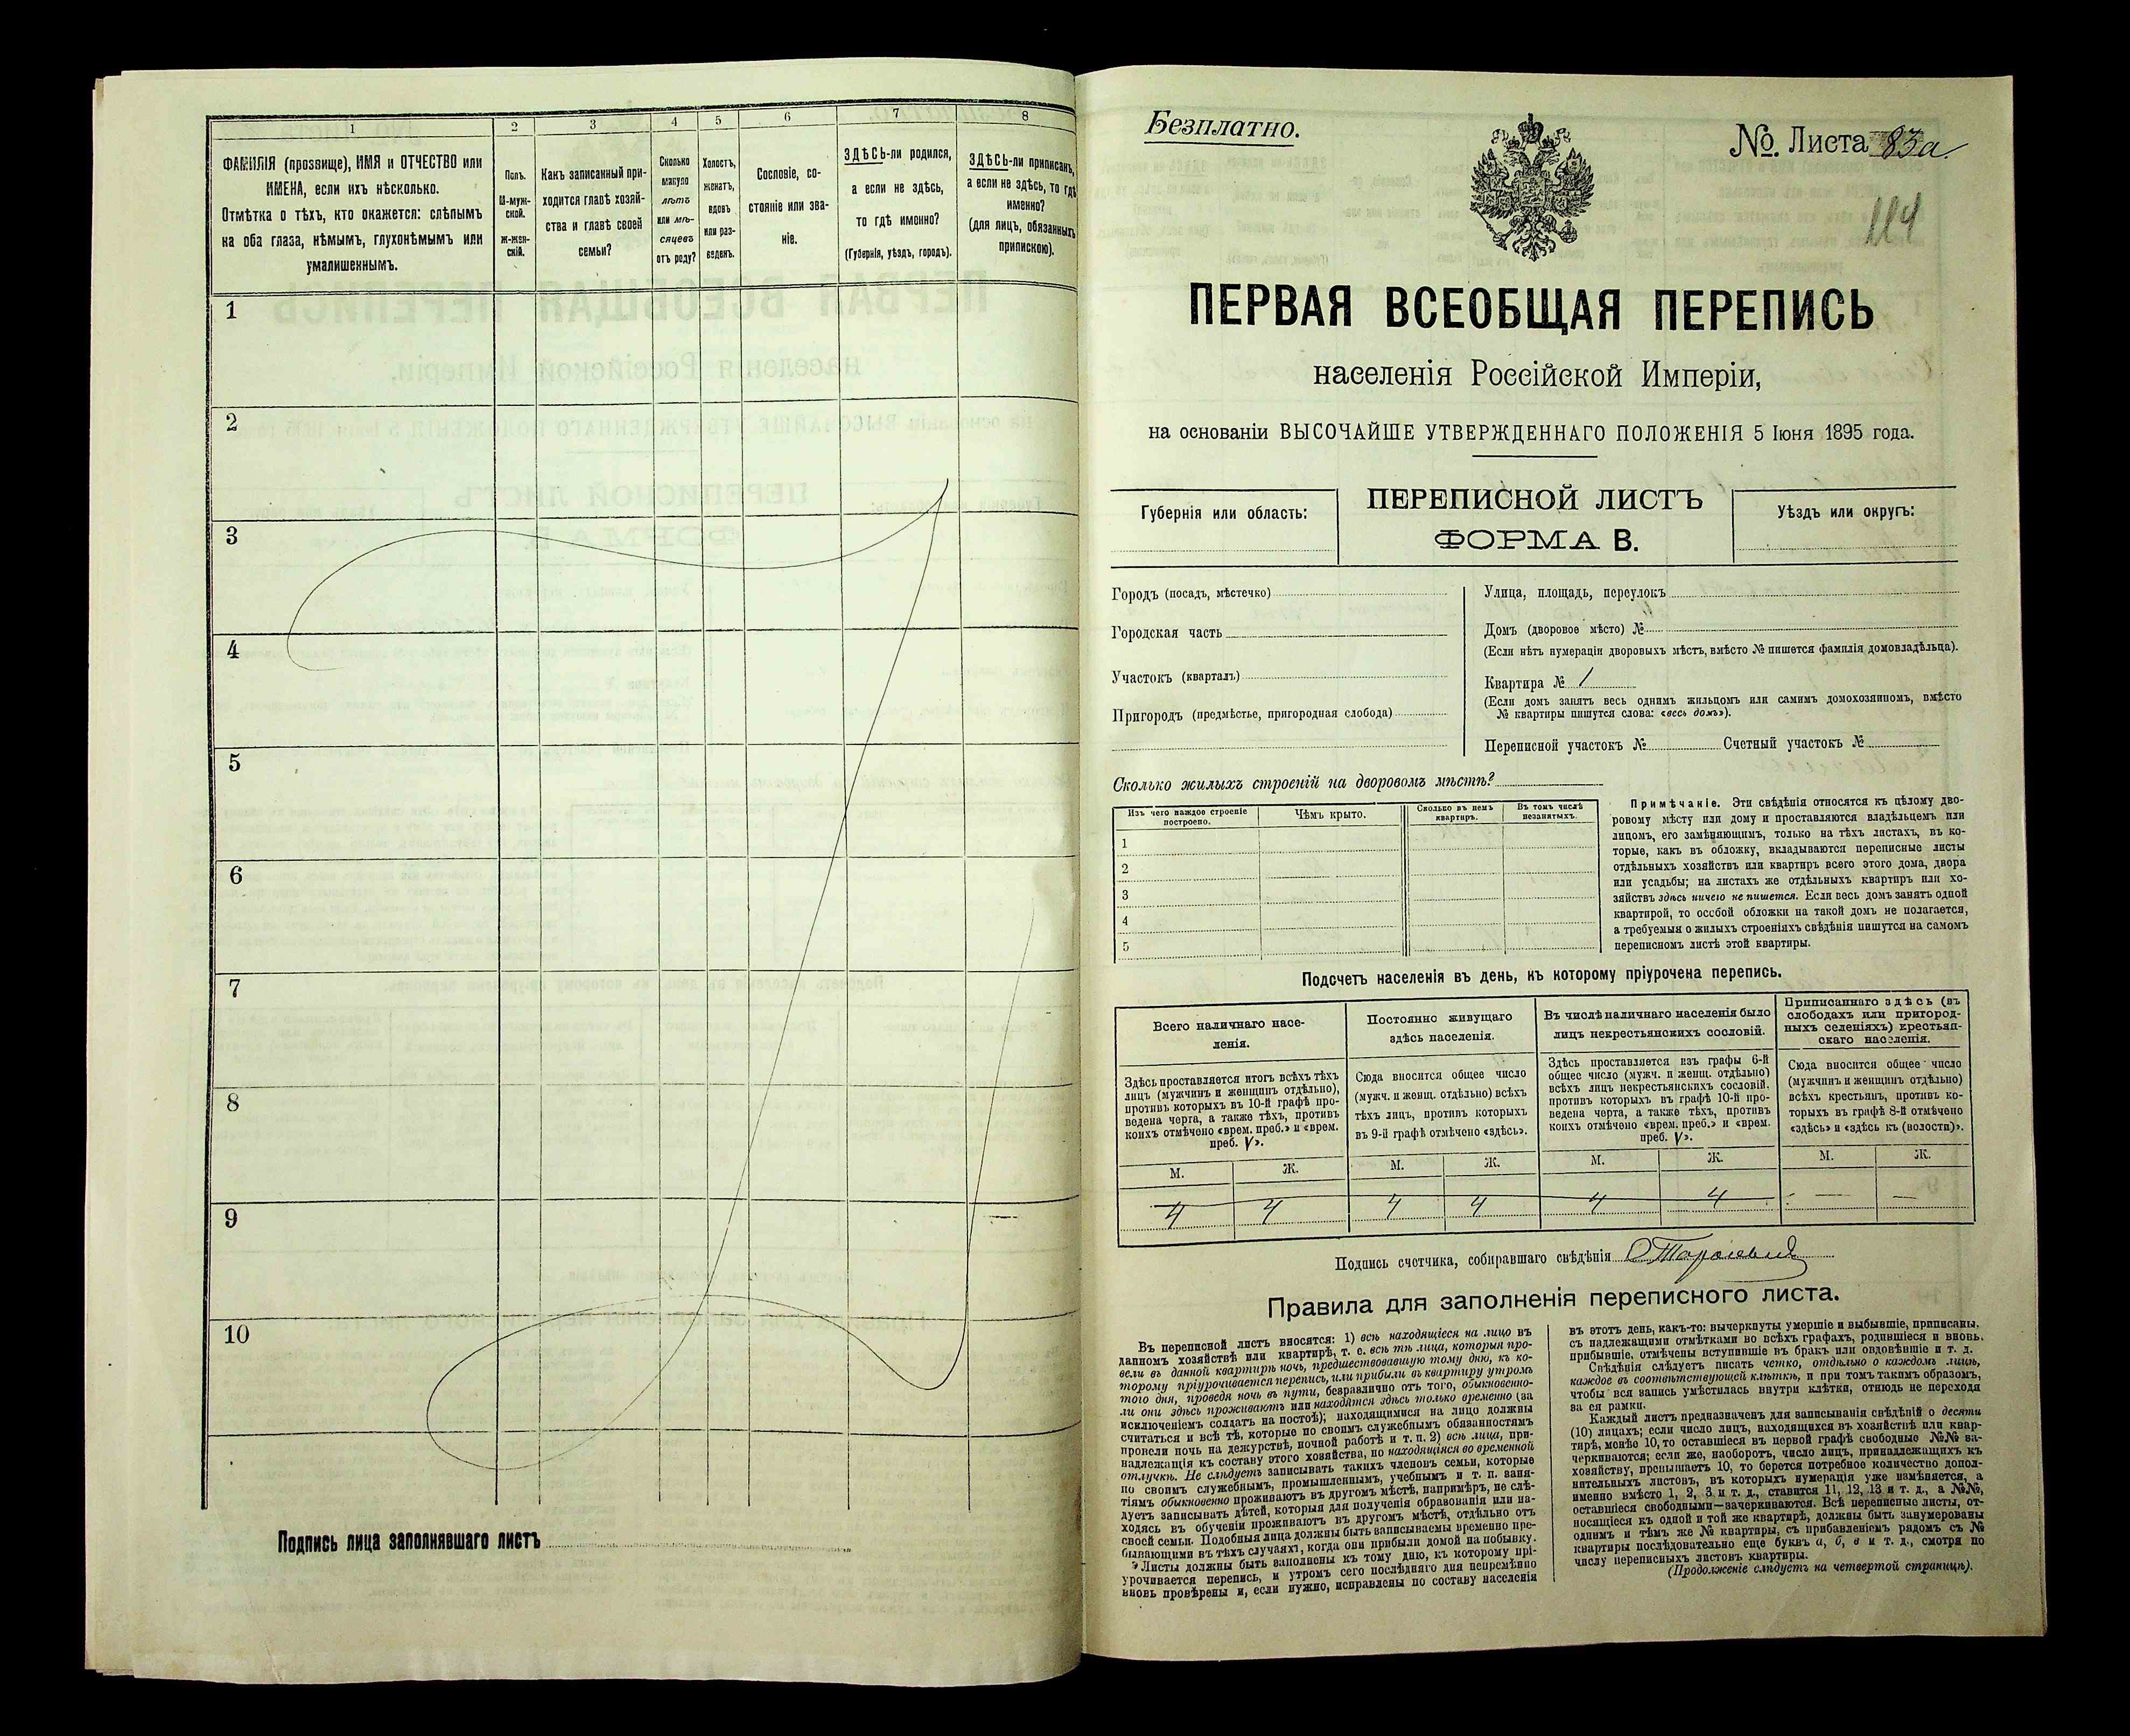 1
2
3
4
5
6
7
8
ФАМИЛІЯ (прозвище), ИМЯ и ОТЧЕСТВО или
ИМЕНА, если ихъ нѣсколько.
Отмѣтка о тѣхъ, кто окажется: слѣпымъ
на оба глаза, нѣмымъ, глухонѣмымъ или
умалишеннымъ.
Полъ.
М-муж-
ской.
Ж-жен-
скій.
Какъ записанный при-
ходится главѣ хозяй-
ства и главѣ своей
семьи?
Сколько
минуло
лѣтъ
или мѣ-
сяцевъ
отъ роду?
Холостъ,
женатъ,
вдовъ
или раз-
веденъ.
Сословіе, со-
стояніе или зва-
ніе.
ЗДѢСЬ-ли родился,
а если не здѣсь,
то гдѣ именно?
(Губернія, уѣздъ, городъ).
ЗДѢСЬ-ли приписанъ,
а если не здѣсь, то гдѣ
именно?
(для лицъ, обязанныхъ
припискою).
1
2
3
4
5
6
7
8
9
10
Подпись лица заполнявшаго листъ
Безплатно.
№. Листа 83а.
114
ПЕРВАЯ ВСЕОБЩАЯ ПЕРЕПИСЬ
населенія Россійской Имперіи,
на основаніи ВЫСОЧАЙШЕ УТВЕРЖДЕННАГО ПОЛОЖЕНІЯ 5 Іюня 1895 года.
Губернія или область:
ПЕРЕПИСНОЙ ЛИСТЪ
ФОРМА В.
Уѣздъ или округъ:
Городъ (посадъ, мѣстечко)
Городская часть
Участокъ (кварталъ)
Пригородъ (предмѣстье, пригородная слобода)
Улица, площадь, переулокъ
Домъ (дворовое мѣсто) №
(Если нѣтъ нумераціи дворовыхъ мѣстъ, вмѣсто № пишется фамилія домовладѣльца).
Квартира № 1
(Если домъ занятъ весь однимъ жильцомъ или самимъ домохозяиномъ, вмѣсто
№ квартиры пишутся слова: «весь домъ»).
Переписной участокъ № Счетный участокъ №
Сколько жилыхъ строеній на дворовомъ мѣстѣ?
Изъ чего каждое строеніе
построено.
Чѣмъ крыто.
Сколько въ немъ
квартиръ.
Въ томъ числѣ
незанятыхъ.
1
2
3
4
5
Примѣчаніе. Эти свѣдѣнія относятся къ цѣлому дво-
ровому мѣсту или дому и проставляются владѣльцемъ или
лицомъ, его замѣняющимъ, только на тѣхъ листахъ, въ ко-
торые, какъ въ обложку, вкладываются переписные листы
отдѣльныхъ хозяйствъ или квартиръ всего этого дома, двора
или усадьбы; на листахъ же отдѣльныхъ квартиръ или хо-
зяйствъ здѣсь ничего не пишется. Если весь домъ занятъ одной
квартирой, то особой обложки на такой домъ не полагается,
а требуемыя о жилыхъ строеніяхъ свѣдѣнія пишутся на самомъ
переписномъ листѣ этой квартиры.
Подсчетъ населенія въ день, къ которому пріурочена перепись.
Всего наличнаго насе-
ленія.
Постоянно живущаго
здѣсь населенія.
Въ числѣ наличнаго населенія было
лицъ некрестьянскихъ сословій.
Приписаннаго здѣсь (въ
слободахъ или пригород-
ныхъ селеніяхъ) крестьян-
скаго населенія.
Здѣсь проставляется итогъ всѣхъ тѣхъ
лицъ (мужчинъ и женщинъ отдѣльно),
противъ которыхъ въ 10-й графѣ про-
ведена черта, а также тѣхъ, противъ
коихъ отмѣчено «врем. преб.» и «врем.
преб. V».
Сюда вносится общее число
(мужч. и женщ. отдѣльно) всѣхъ
тѣхъ лицъ, противъ которыхъ
въ 9-й графѣ отмѣчено «здѣсь».
Здѣсь проставляется изъ графы 6-й
общее число (мужч. и женщ. отдѣльно)
всѣхъ лицъ некрестьянскихъ сословій,
противъ которыхъ въ графѣ 10-й про-
ведена черта, а также тѣхъ, противъ
коихъ отмѣчено «врем. преб.» и «врем.
преб. V».
Сюда вносится общее число
(мужчинъ и женщинъ отдѣльно)
всѣхъ крестьянъ, противъ ко-
торыхъ въ графѣ 8-й отмѣчено
«здѣсь» и «здѣсь къ (волости)».
М. Ж. М. Ж. М. Ж. М. Ж.
4 4 4 4 4 4 — —
Подпись счетчика, собиравшаго свѣдѣнія
Правила для заполненія переписного листа.
Въ переписной листъ вносятся: 1) всѣ находящіеся на лицо въ
данномъ хозяйствѣ или квартирѣ, т. е. всѣ тѣ лица, которыя про-
вели въ данной квартирѣ ночь, предшествовавшую тому дню, къ ко-
торому пріурочивается перепись, или прибыли въ квартиру утромъ
того дня, проведя ночь въ пути, безразлично отъ того, обыкновенно-
ли они здѣсь проживаютъ или находятся здѣсь только временно (за
исключеніемъ солдатъ на постоѣ); находящимися на лицо должны
считаться и всѣ тѣ, которые по своимъ служебнымъ обязанностямъ
провели ночь на дежурствѣ, ночной работѣ и т. п. 2) всѣ лица, при-
надлежащія къ составу этого хозяйства, но находящіяся во временной
отлучкѣ. Не слѣдуетъ записывать такихъ членовъ семьи, которые
по своимъ служебнымъ, промышленнымъ, учебнымъ и т. п. заня-
тіямъ обыкновенно проживаютъ въ другомъ мѣстѣ, напримѣръ, не слѣ-
дуетъ записывать дѣтей, которыя для полученія образованія или на-
ходясь въ обученіи проживаютъ въ другомъ мѣстѣ, отдѣльно отъ
своей семьи. Подобныя лица должны быть записываемы временно пре-
бывающими въ тѣхъ случаяхъ, когда они прибыли домой на побывку.
Листы должны быть заполнены къ тому дню, къ которому прі-
урочивается перепись, и утромъ сего послѣдняго дня непремѣнно
вновь провѣрены и, если нужно, исправлены по составу населенія
въ этотъ день, какъ-то: вычеркнуты умершіе и выбывшіе, приписаны,
съ надлежащими отмѣтками во всѣхъ графахъ, родившіеся и вновь
прибывшіе, отмѣчены вступившіе въ бракъ или овдовѣвшіе и т. д.
Свѣдѣнія слѣдуетъ писать четко, отдѣльно о каждомъ лицѣ,
каждое въ соотвѣтствующей клѣткѣ, и при томъ такимъ образомъ,
чтобы вся запись умѣстилась внутри клѣтки, отнюдь не переходя
за ея рамки.
Каждый листъ предназначенъ для записыванія свѣдѣній о десяти
(10) лицахъ; если число лицъ, находящихся въ хозяйствѣ или квар-
тирѣ, менѣе 10, то оставшіеся въ первой графѣ свободные №№ за-
черкиваются; если же, наоборотъ, число лицъ, принадлежащихъ къ
хозяйству, превышаетъ 10, то берется потребное количество допол-
нительныхъ листовъ, въ которыхъ нумерація уже измѣняется, а
именно вмѣсто 1, 2, 3 и т. д., ставится 11, 12, 13 и т. д., а №№,
оставшіеся свободными—зачеркиваются. Всѣ переписные листы, от-
носящіеся къ одной и той же квартирѣ, должны быть занумерованы
однимъ и тѣмъ же № квартиры, съ прибавленіемъ рядомъ съ №
квартиры послѣдовательно еще буквъ а, б, в и т. д., смотря по
числу переписныхъ листовъ квартиры.
(Продолженіе слѣдуетъ на четвертой страницѣ).